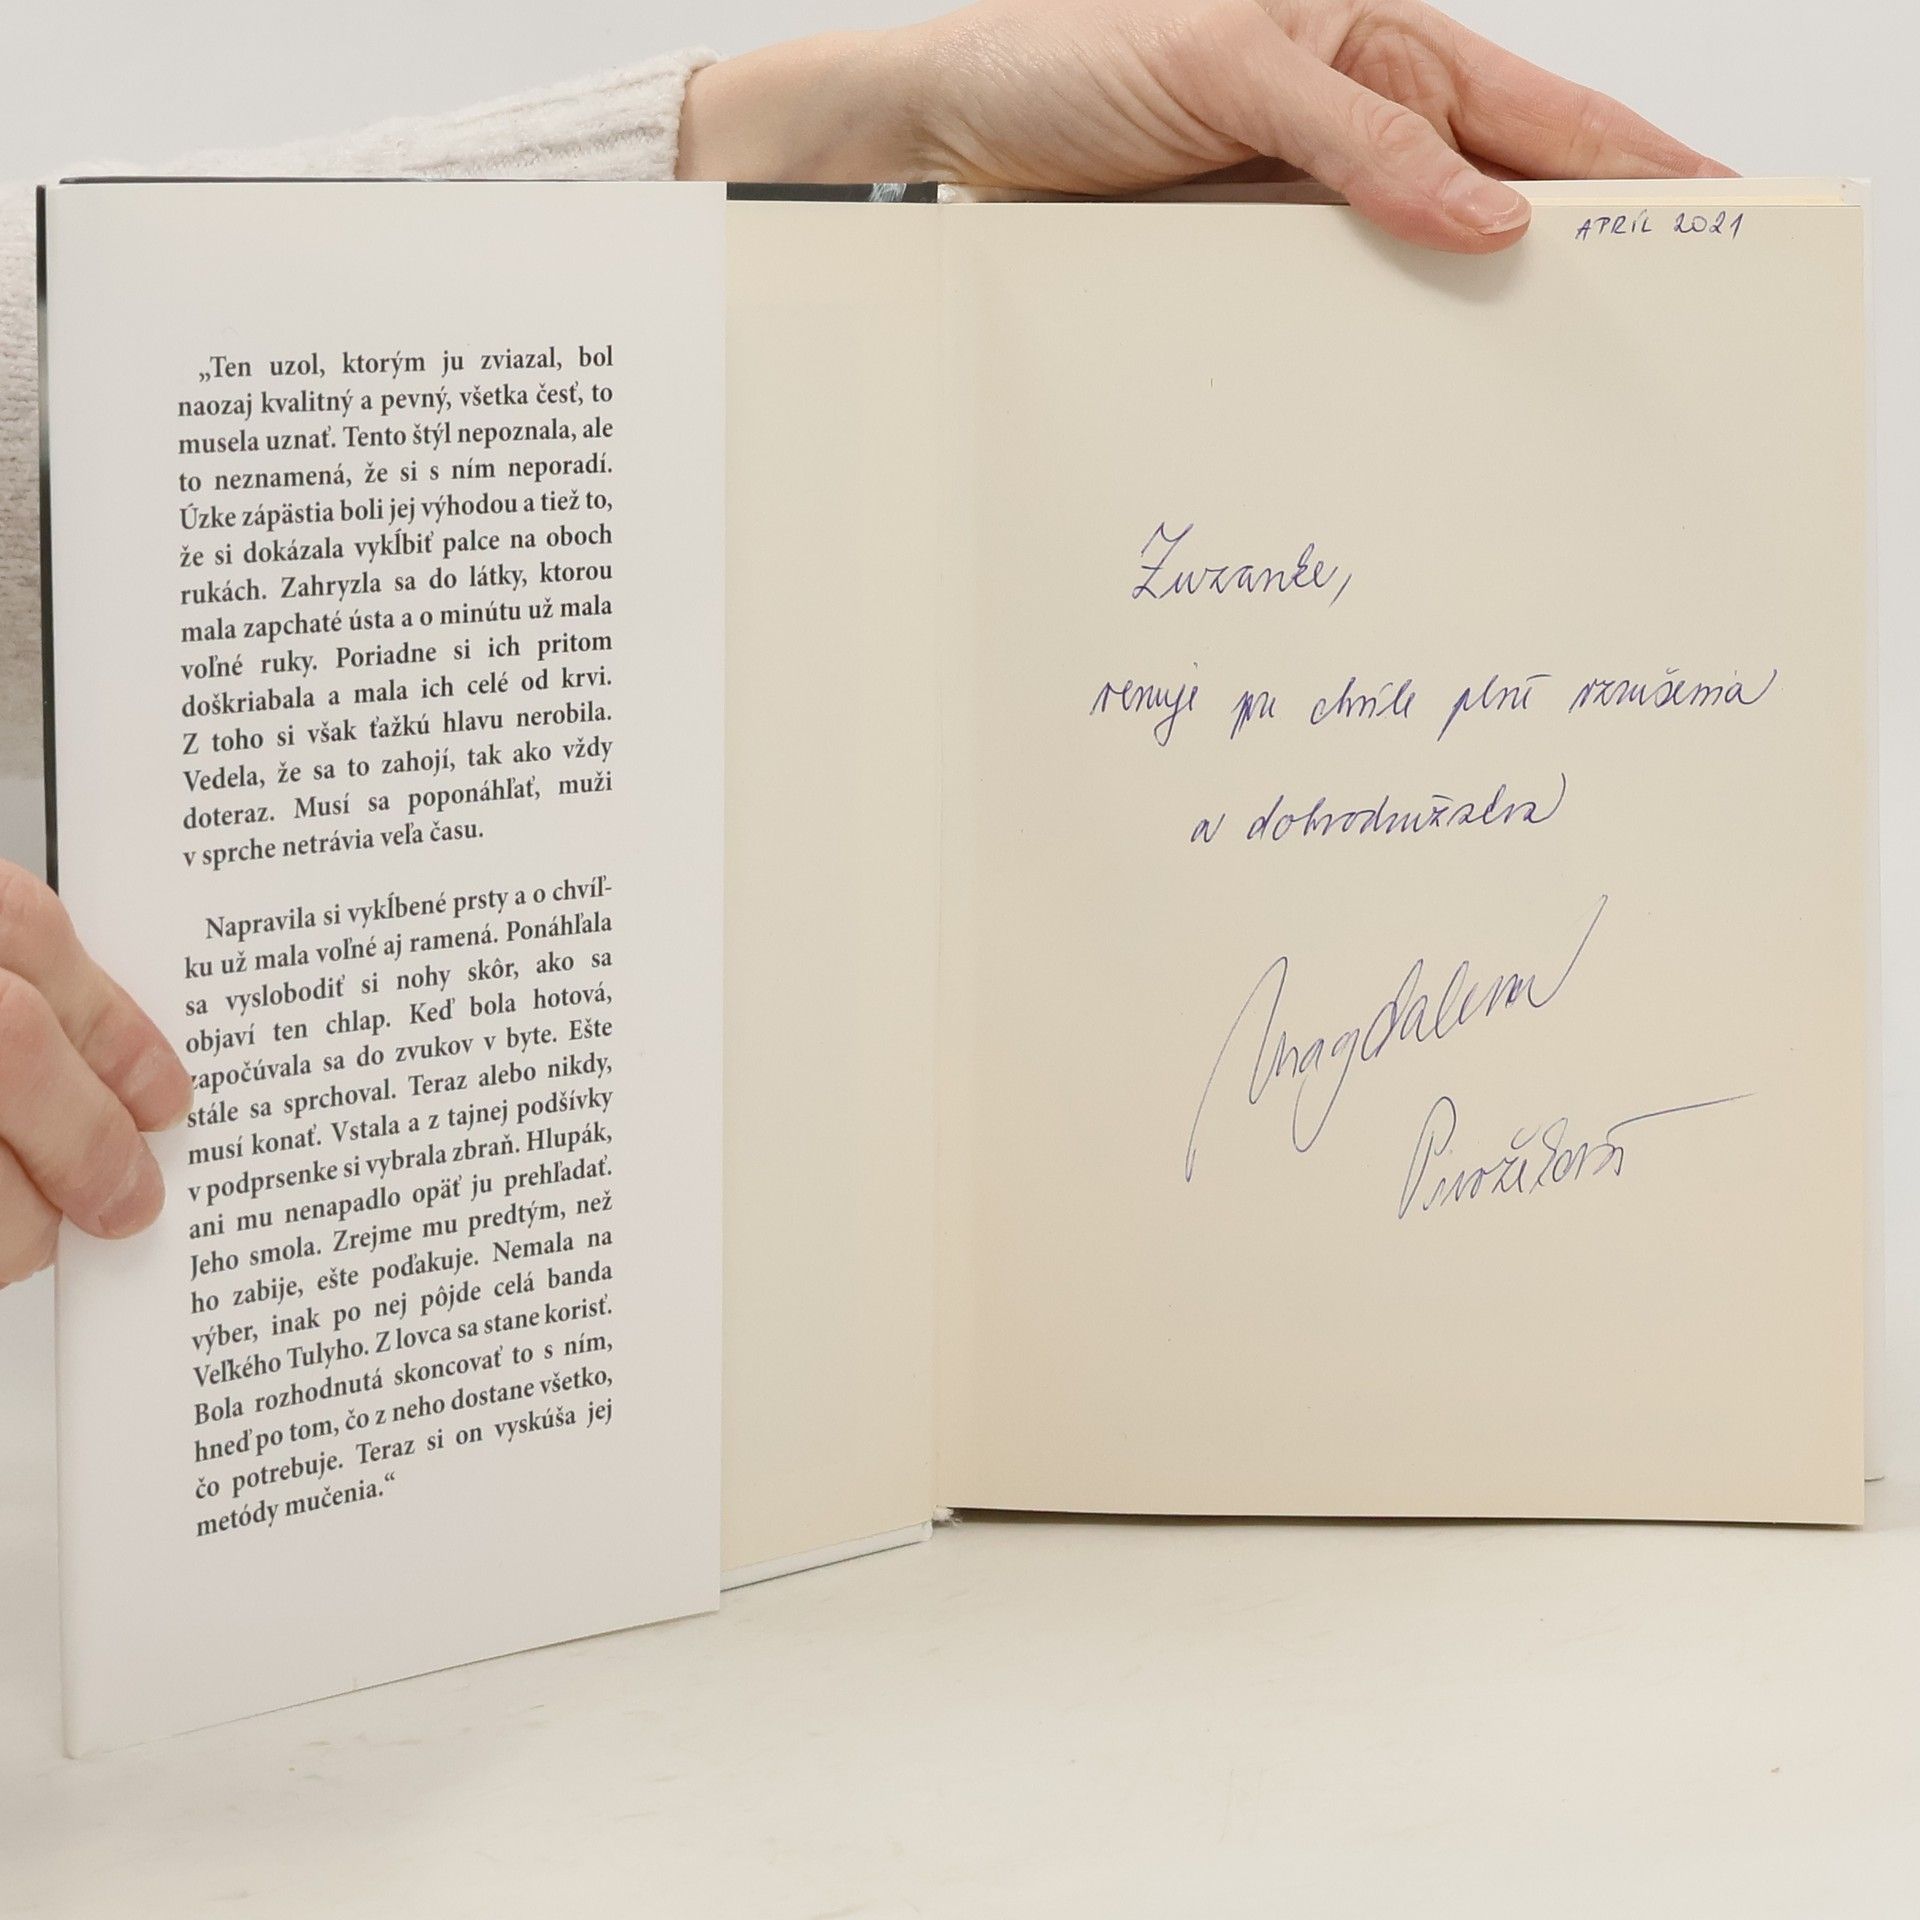 „Ten uzol, ktorým ju zviazal, bol
naozaj kvalitný a pevný, všetka česť, to
musela uznať. Tento štýl nepoznala, ale
to neznamená, že si s ním neporadí.
Úzke zápästia boli jej výhodou a tiež to,
že si dokázala vykĺbiť palce na oboch
rukách. Zahryzla sa do látky, ktorou
mala zapchaté ústa a o minútu už mala
voľné ruky. Poriadne si ich pritom
doškriabala a mala ich celé od krvi.
Z toho si však ťažkú hlavu nerobila.
Vedela, že sa to zahojí, tak ako vždy
doteraz. Musí sa poponáhľať, muži
v sprche netrávia veľa času.
Napravila si vykĺbené prsty a o chvíľ-
ku už mala voľné aj ramená. Ponáhľala
sa vyslobodiť si nohy skôr, ako sa
objaví ten chlap. Keď bola hotová,
započúvala sa do zvukov v byte. Ešte
stále sa sprchoval. Teraz alebo nikdy,
musí konať. Vstala a z tajnej podšívky
v podprsenke si vybrala zbraň. Hlupák,
ani mu nenapadlo opäť ju prehľadať.
Jeho smola. Zrejme mu predtým, než
ho zabije, ešte poďakuje. Nemala na
výber, inak po nej pôjde celá banda
Veľkého Tulyho. Z lovca sa stane korisť.
Bola rozhodnutá skoncovať to s ním,
hneď po tom, čo z neho dostane všetko,
čo potrebuje. Teraz si on vyskúša jej
metódy mučenia.“
APRÍL 2021
Zuzanke,
venuje pre chvíle plné vzrušenia
a dobrodružstva
Magdalena